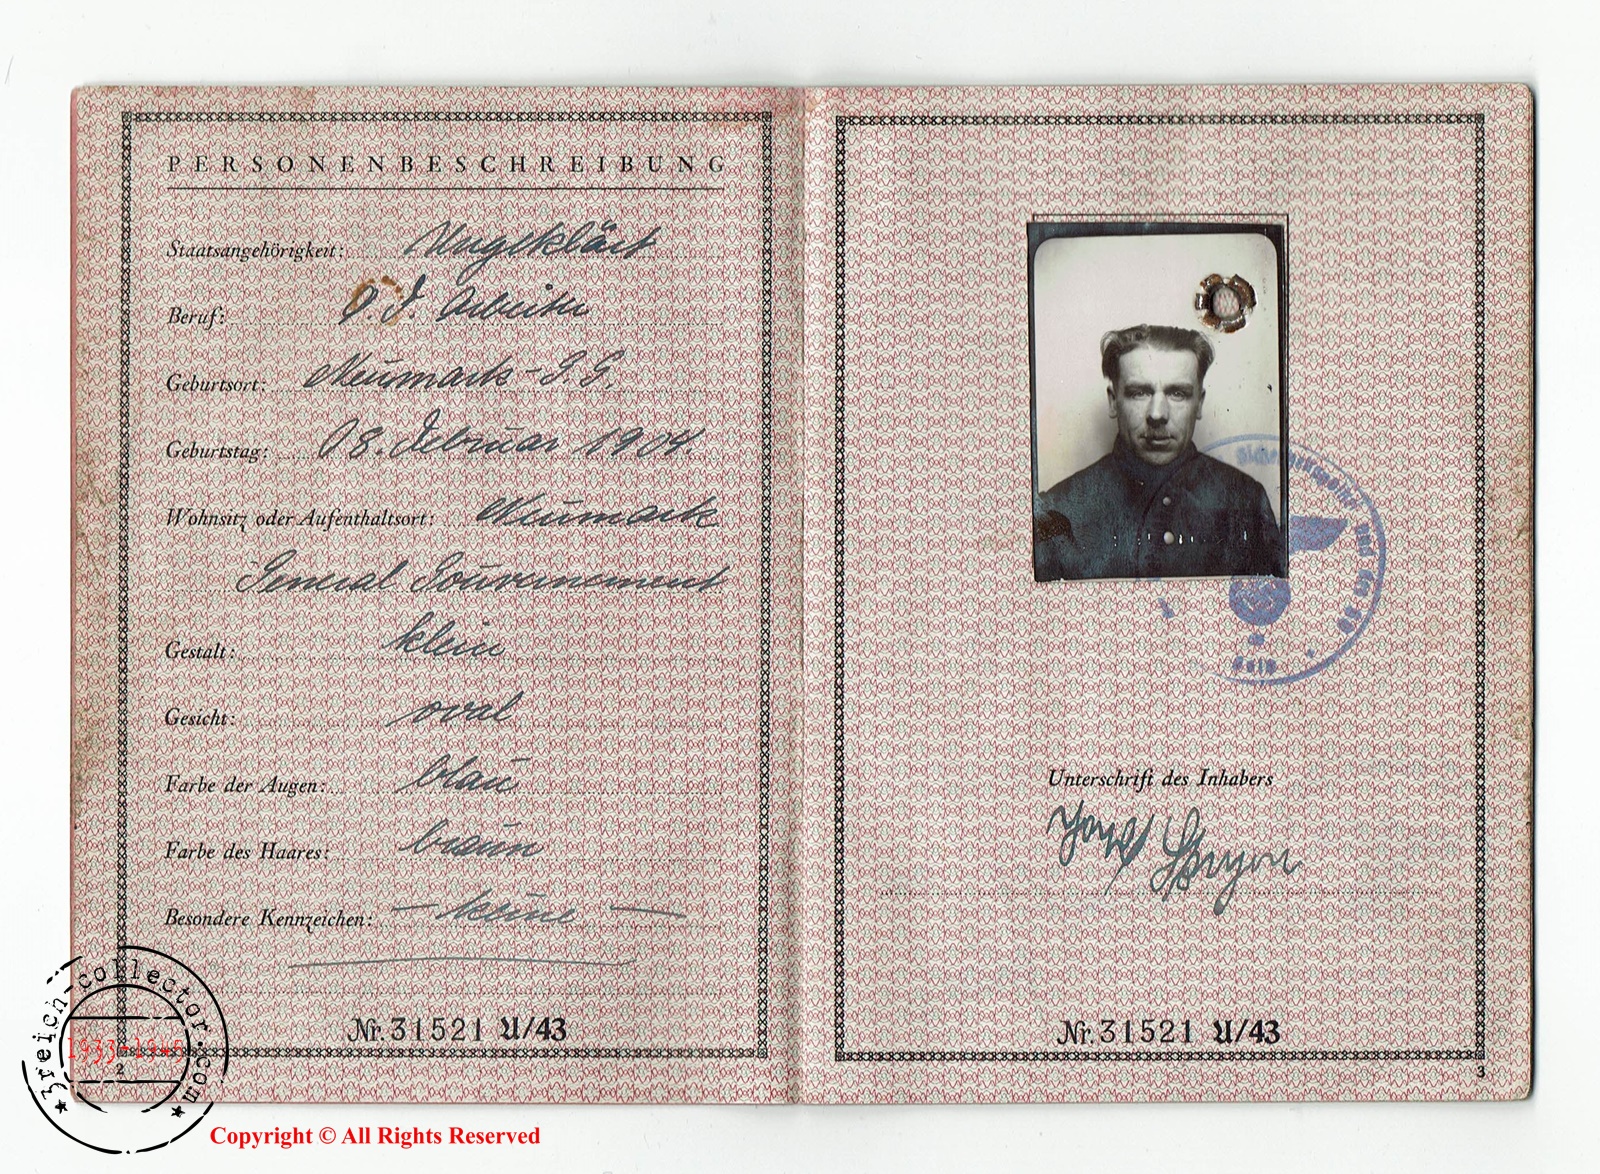 PERSONENBESCHREIBUNG
Staatsangehörigkeit: Ungeklärt
Beruf: O.T. Arbeiter
Geburtsort: Neumark - G.G.
Geburtstag: 08. Februar 1904.
Wohnsitz oder Aufenthaltsort: Neumark
General Gouvernement
Gestalt: klein
Gesicht: oval
Farbe der Augen: blau
Farbe des Haares: braun
Besondere Kennzeichen: - keine -
Nr. 31521 U/43
2
Unterschrift des Inhabers
Nr. 31521 U/43
3
3reich-collector.com
1933-1945
Copyright © All Rights Reserved